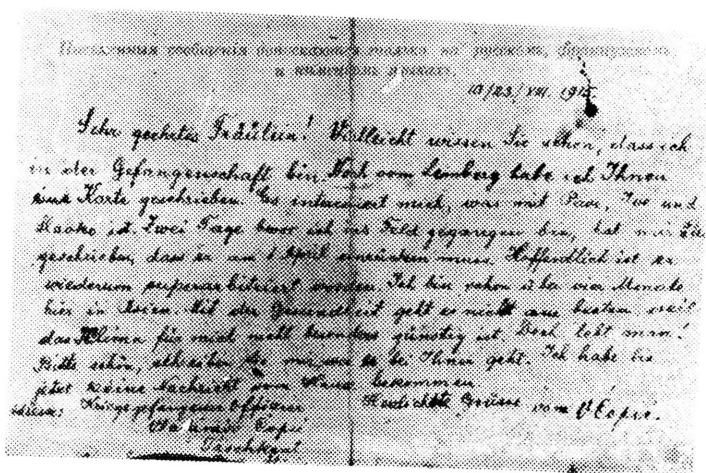 Письменныя сообщенія допускаются только на русскомъ, французскомъ
и нѣмецкомъ языкахъ.
10/23/VIII. 1915.
Sehr geehrtes Fräulein! Vielleicht wissen Sie schon, dass ich
in der Gefangenschaft bin. Noch vom Lemberg habe ich Ihnen
eine Karte geschrieben. Es interessiert mich, was mit Pavo, Ivo und
ist. Zwei Tage bevor ich ins Feld gegangen bin, hat mir
geschrieben, dass er am 1 April einrücken muss. Hoffendlich ist er
wiederum superarbitriert worden. Ich bin schon über vier Monate
hier in Asien. Mit der Gesundheit geht es nicht am besten, weil
das Klima für mich nicht besonders günstig ist. Doch lebt man!
Bitte schön, schreiben Sie mir, wie es bei Ihnen geht. Ich habe bis
jetzt keine Nachricht vom Haus bekommen.
Adresse: Kriegsgefangener Offizier Herzlichste Grüsse vom V Ćopić.
Ćopić
Taschkent